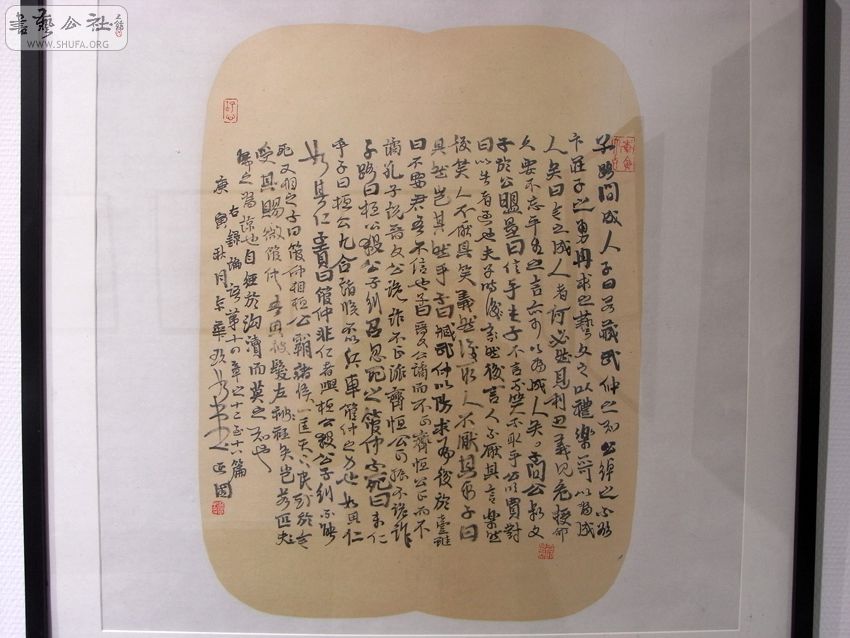 書藝公社
WWW.SHUFA.ORG
子路問成人子曰若臧武仲之知公綽之不欲
卞莊子之勇冉求之藝文之以禮樂亦可以為成
人矣曰今之成人者何必然見利思義見危授命
久要不忘平生之言亦可以為成人矣。子問公叔文
子於公曰信乎夫子不言不笑不取乎公賈對
曰以告者過也夫子時後言人不厭其言樂然
後笑人不厭其笑義然後取人不厭其取子曰
其然豈其然乎子曰臧武仲以防求為後於魯雖
曰不要君吾不信也子曰晉文公譎而不正齊恒公正而不
譎孔子說晉文公詭詐不正派齊恒公正派不詭詐
子路曰桓公殺公子糾召忽死之管仲不死曰未仁
乎子曰桓公九合諸侯不以兵車管仲之力也如其仁
如其仁子貢曰管仲非仁者與桓公殺公子糾不能
死又相之子曰管仲相桓公霸諸侯一匡天下民到於今
受其賜微管仲吾其被髮左衽矣豈若匹夫
婦之為諒也自經於溝瀆而莫之知也
右錄論語第十四章之十二至十六篇
庚寅秋月京華